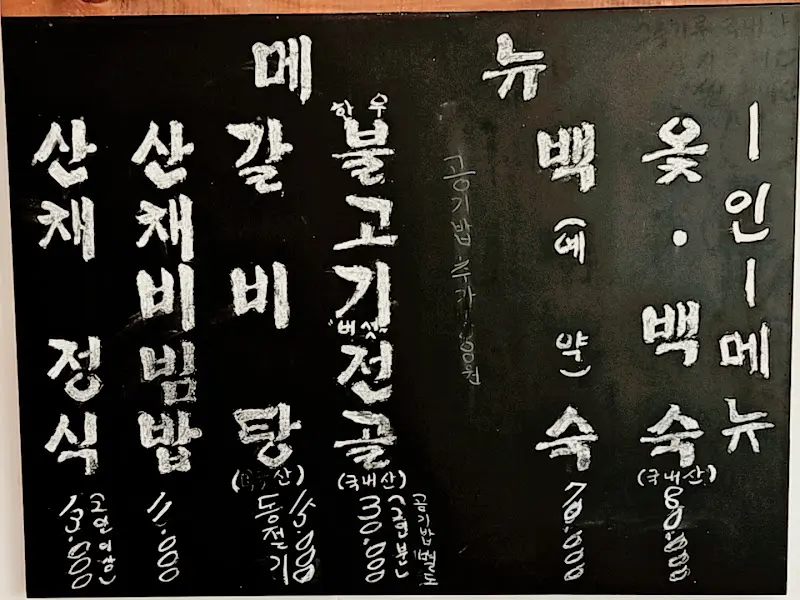 메뉴
ㅣ인ㅣ메뉴
옻·백숙
(국내산)
80.000
백(예약)숙
70.000
공기밥 추가
한우
불고기
"버섯"
전골
(국내산)
30.000
(2인분)
공기밥별도
갈비탕
산)
15.000
동절기
산채비빔밥
11.000
산채정식
13.000
(2인이상)